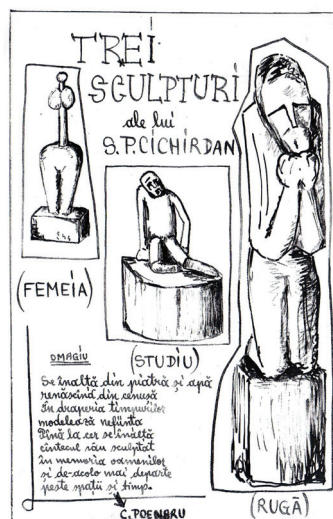 TREI
SCULPTURI
ale lui
S.P.CICHIRDAN
(FEMEIA)
(STUDIU)
OMAGIU
Se înalță din piatră și apă
renăscînd din cenușă
În draperia timpurilor
modelează neființa
Pînă la cer se înalță
cîntecul său sculptat
în memoria oamenilor
și de-acolo mai departe
peste spații și timp.
C. POENARU
(RUGĂ)